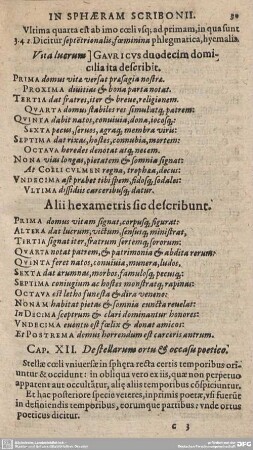 IN SPHÆRAM SCRIBONII.
Vltima quarta est ab imo cœli vsq; ad primam, in qua sunt
3. 4. 5. Dicitur septẽtrionalis, fœminina phlegmatica, hyemalis.
Vita lucrum] GAVRICVS duodecim domi-
cilia ita describit.
PRIMA domus vitæ versat præsagia nostræ.
PROXIMA diuitias & bona parta notat.
TERTIA dat fratres, iter & breue, religionem.
QVARTA domus stabiles res simulatq; patrem.
QVINTA dabit natos, conuiuia, dona, iocosq;:
SEXTA pecus, seruos, ægraq; membra viru:
SEPTIMA dat rixas, hostes, connubia, mortem:
OCTAVA hæredes denotat atq; necem.
NONA vias longas, pietatem & somnia signat:
At COELI CVLMEN regna, trophæa, decus:
VNDECIMA ast præbet tibi spem, fidosq; sodales:
VLTIMA dissidiis carceribusq; datur.
Alii hexametris sic describunt.
PRIMA domus vitam signat, corpusq; figurat:
ALTERA dat lucrum, victum, sensusq; ministrat,
TERTIA signat iter, fratrum sortemq; sororum:
QVARTA notat patrem, & patrimonia & abdita rerum:
QVINTA feret natos, conuiuia, munera, ludos,
SEXTA dat ærumnas, morbos, famulosq; pecusq;:
SEPTIMA coniugium ac hostes monstratq; rapinas:
OCTAVA est letho funesta & dira veneno:
NONAM habitat pietas & somnia cuncta reuelat:
IN DECIMA sceptrum & clari dominantur honores:
VNDECIMA euentu est fœlix & donat amicos:
ET POSTREMA domus horrendum est carceris antrum.
CAP. XII. De stellarum ortu & occasu poetico.
Stellæ cœli vniuersæ in sphæra recta certis temporibus ori-
untur & occidunt: in obliqua vero ex iis, quæ non perpetuo
apparent aut occultãtur, aliæ aliis temporibus cõspiciuntur.
Et hac posteriore specie veteres, inprimis poetæ, vsi fuerũt
in definiendis temporibus, eorumque partibus: vnde ortus
poeticus dicitur.